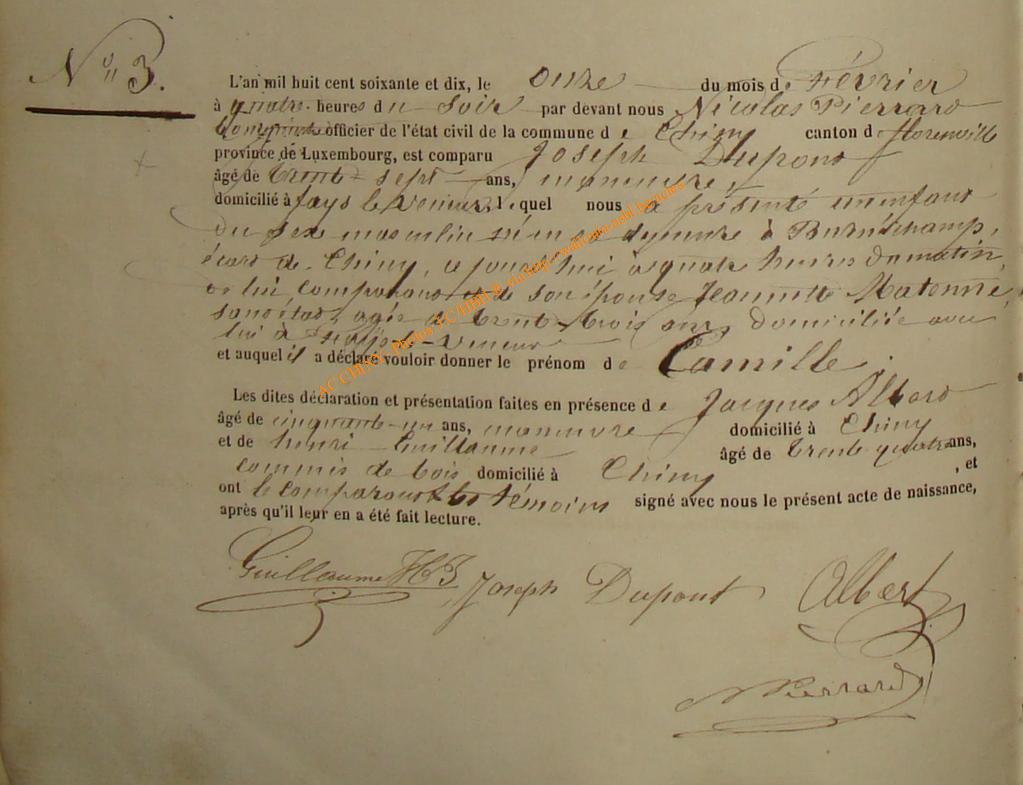 N° 3.
L'an mil huit cent soixante et dix, le onze du mois de Février
à quatre heures du soir par devant nous Nicolas Pierrard
Bourgmestre officier de l'état civil de la commune de Chiny canton de florenville
province de Luxembourg, est comparu Joseph Dupont
âgé de trente-sept ans, manœuvre,
domicilié à fays le veneur, lequel nous a présenté un enfant
du sexe masculin né en sa demeure à
écart de Chiny, ce jourd'hui à quatre heures du matin,
de lui comparant et de son épouse Jeannette Matonné,
sans état, agée de trente-trois ans, domiciliée avec
lui à le-veneur
et auquel il a déclaré vouloir donner le prénom de Camille.
Les dites déclaration et présentation faites en présence de Jacques Albard
âgé de cinquante-un ans, manœuvre domicilié à Chiny
et de henri Guillaume âgé de trente quatre ans,
commis de bois domicilié à Chiny, et
ont le comparant & les témoins signé avec nous le présent acte de naissance,
après qu'il leur en a été fait lecture.
Guillaume HJ Joseph Dupont Albert
N Pierrard